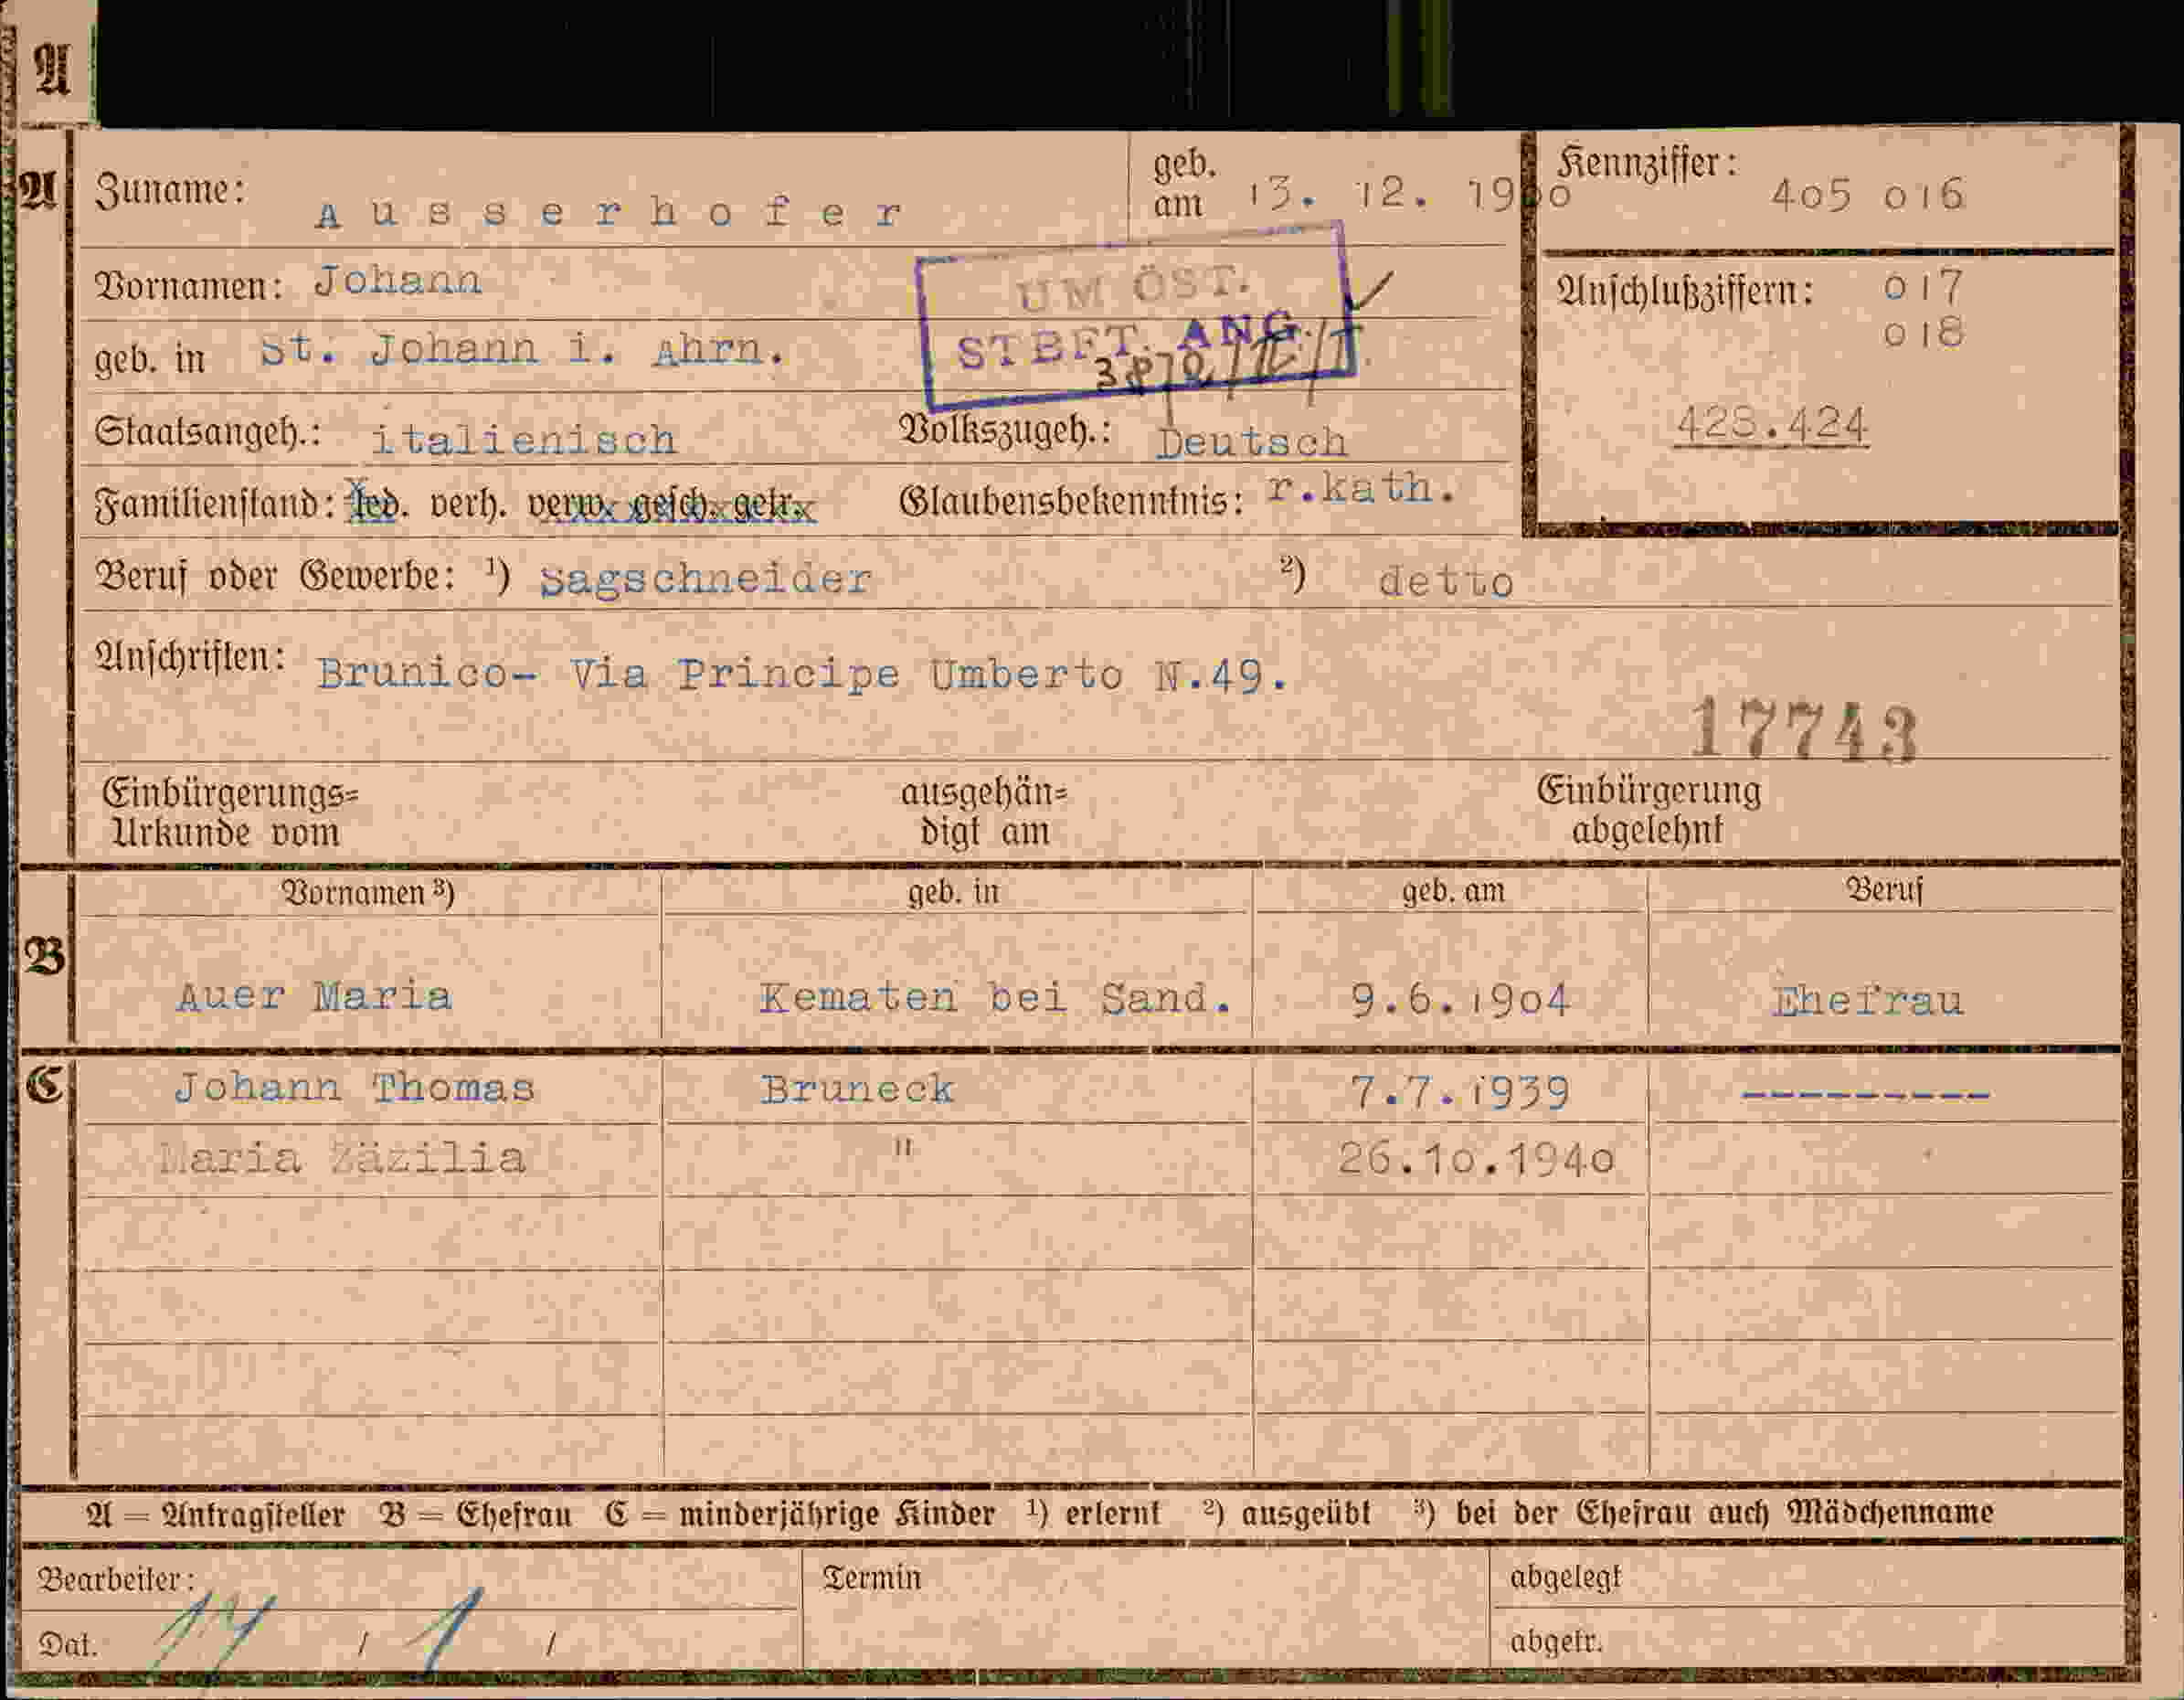 A
A Zuname: Ausserhofer geb. am 13. 12. 1900 Kennziffer: 405 016
Vornamen: Johann Anschlußziffern: 017
018
UM ÖST.
STBFT. ANG.
geb. in St. Johann i. Ahrn.
423.424
Staatsangeh.: italienisch Volkszugeh.: Deutsch
Familienstand: led. verh. verw. gesch. getr. Glaubensbekenntnis: r.kath.
Beruf oder Gewerbe: ¹) Sagschneider ²) detto
Anschriften: Brunico- Via Principe Umberto N.49.
17743
Einbürgerungs= ausgehän= Einbürgerung
Urkunde vom digt am abgelehnt
Vornamen ³) geb. in geb. am Beruf
B
Auer Maria Kematen bei Sand. 9.6.1904 Ehefrau
C Johann Thomas Bruneck 7.7.1939 ---------
Maria Zäzilia " 26.10.1940
A = Antragsteller B = Ehefrau C = minderjährige Kinder ¹) erlernt ²) ausgeübt ³) bei der Ehefrau auch Mädchenname
Bearbeiter: Termin abgelegt
Dat. / / abgetr.